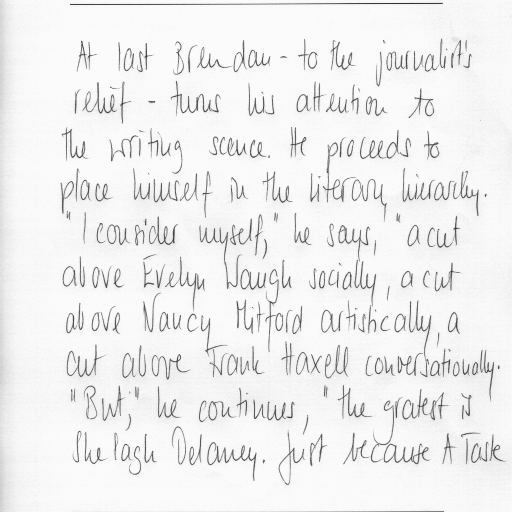 At last Brendan - to the journalist's
relief - turns his attention to
the writing scence. He proceeds to
place himself in the literary hierarchy.
"I consider myself," he says, "a cut
above Evelyn Waugh socially, a cut
above Nancy Mitford artistically, a
cut above Frank Haxell conversationally.
"But," he continues, "the gratest is
Shelagh Delaney. Just because A Taste